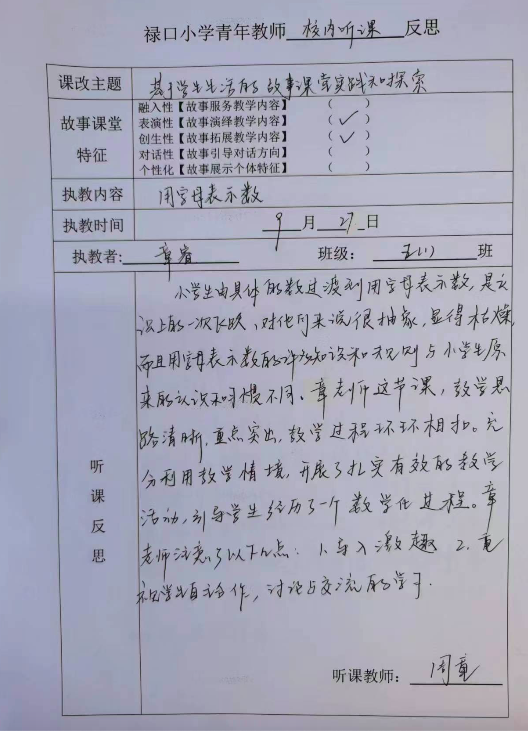 禄口小学青年教师 校内听课 反思
课改主题 基于学生生活的故事课堂实践和探索
故事课堂特征
融入性【故事服务教学内容】 （ ）
表演性【故事演绎教学内容】 （ ✓ ）
创生性【故事拓展教学内容】 （ ✓ ）
对话性【故事引导对话方向】 （ ）
个性化【故事展示个体特征】 （ ）
执教内容 用字母表示数
执教时间 9 月 27 日
执教者: 章 班级: 五(1) 班
听课反思
小学生由具体的数过渡到用字母表示数,是认
识上的一次飞跃,对他们来说很抽象,显得枯燥,
而且用字母表示数的许多知识和规则与小学生原
来的认识和习惯不同。章老师这节课,教学思
路清晰,重点突出,教学过程环环相扣。充
分利用教学情境,开展了扎实有效的教学
活动,引导学生经历了一个数学化过程。章
老师注意了以下几点: 1.导入激趣 2.重
视学生自主合作,讨论与交流的学习.
听课教师: 周童